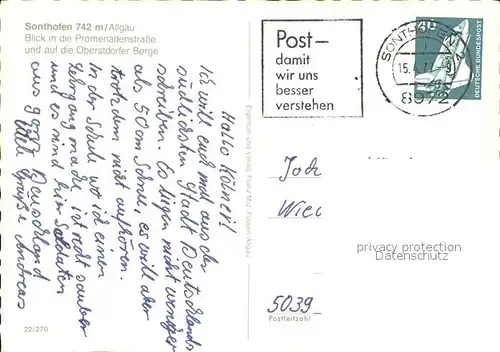 Sonthofen 742 m/Allgäu
Blick in die Promenadenstraße
und auf die Oberstdorfer Berge
Hallo Kölner!
Ich will euch mal aus der
südlichsten Stadt Deutschlands
schreiben. Es liegen nicht weniger
als 50 cm Schnee, es will aber
trotzdem nicht aufhören.
In der Schule wo ich einen
Lehrgang mache ist recht sauber
und es sind hier Soldaten
aus ganz Deutschland
Viele Grüße Andreas
22/270
Eigentum und Verlag Franz Füssen-Allgäu
Post –
damit
wir uns
besser
verstehen
SONTHOFEN
15.
8972
60
DEUTSCHE BUNDESPOST
5039
Postleitzahl
privacy protection
Datenschutz